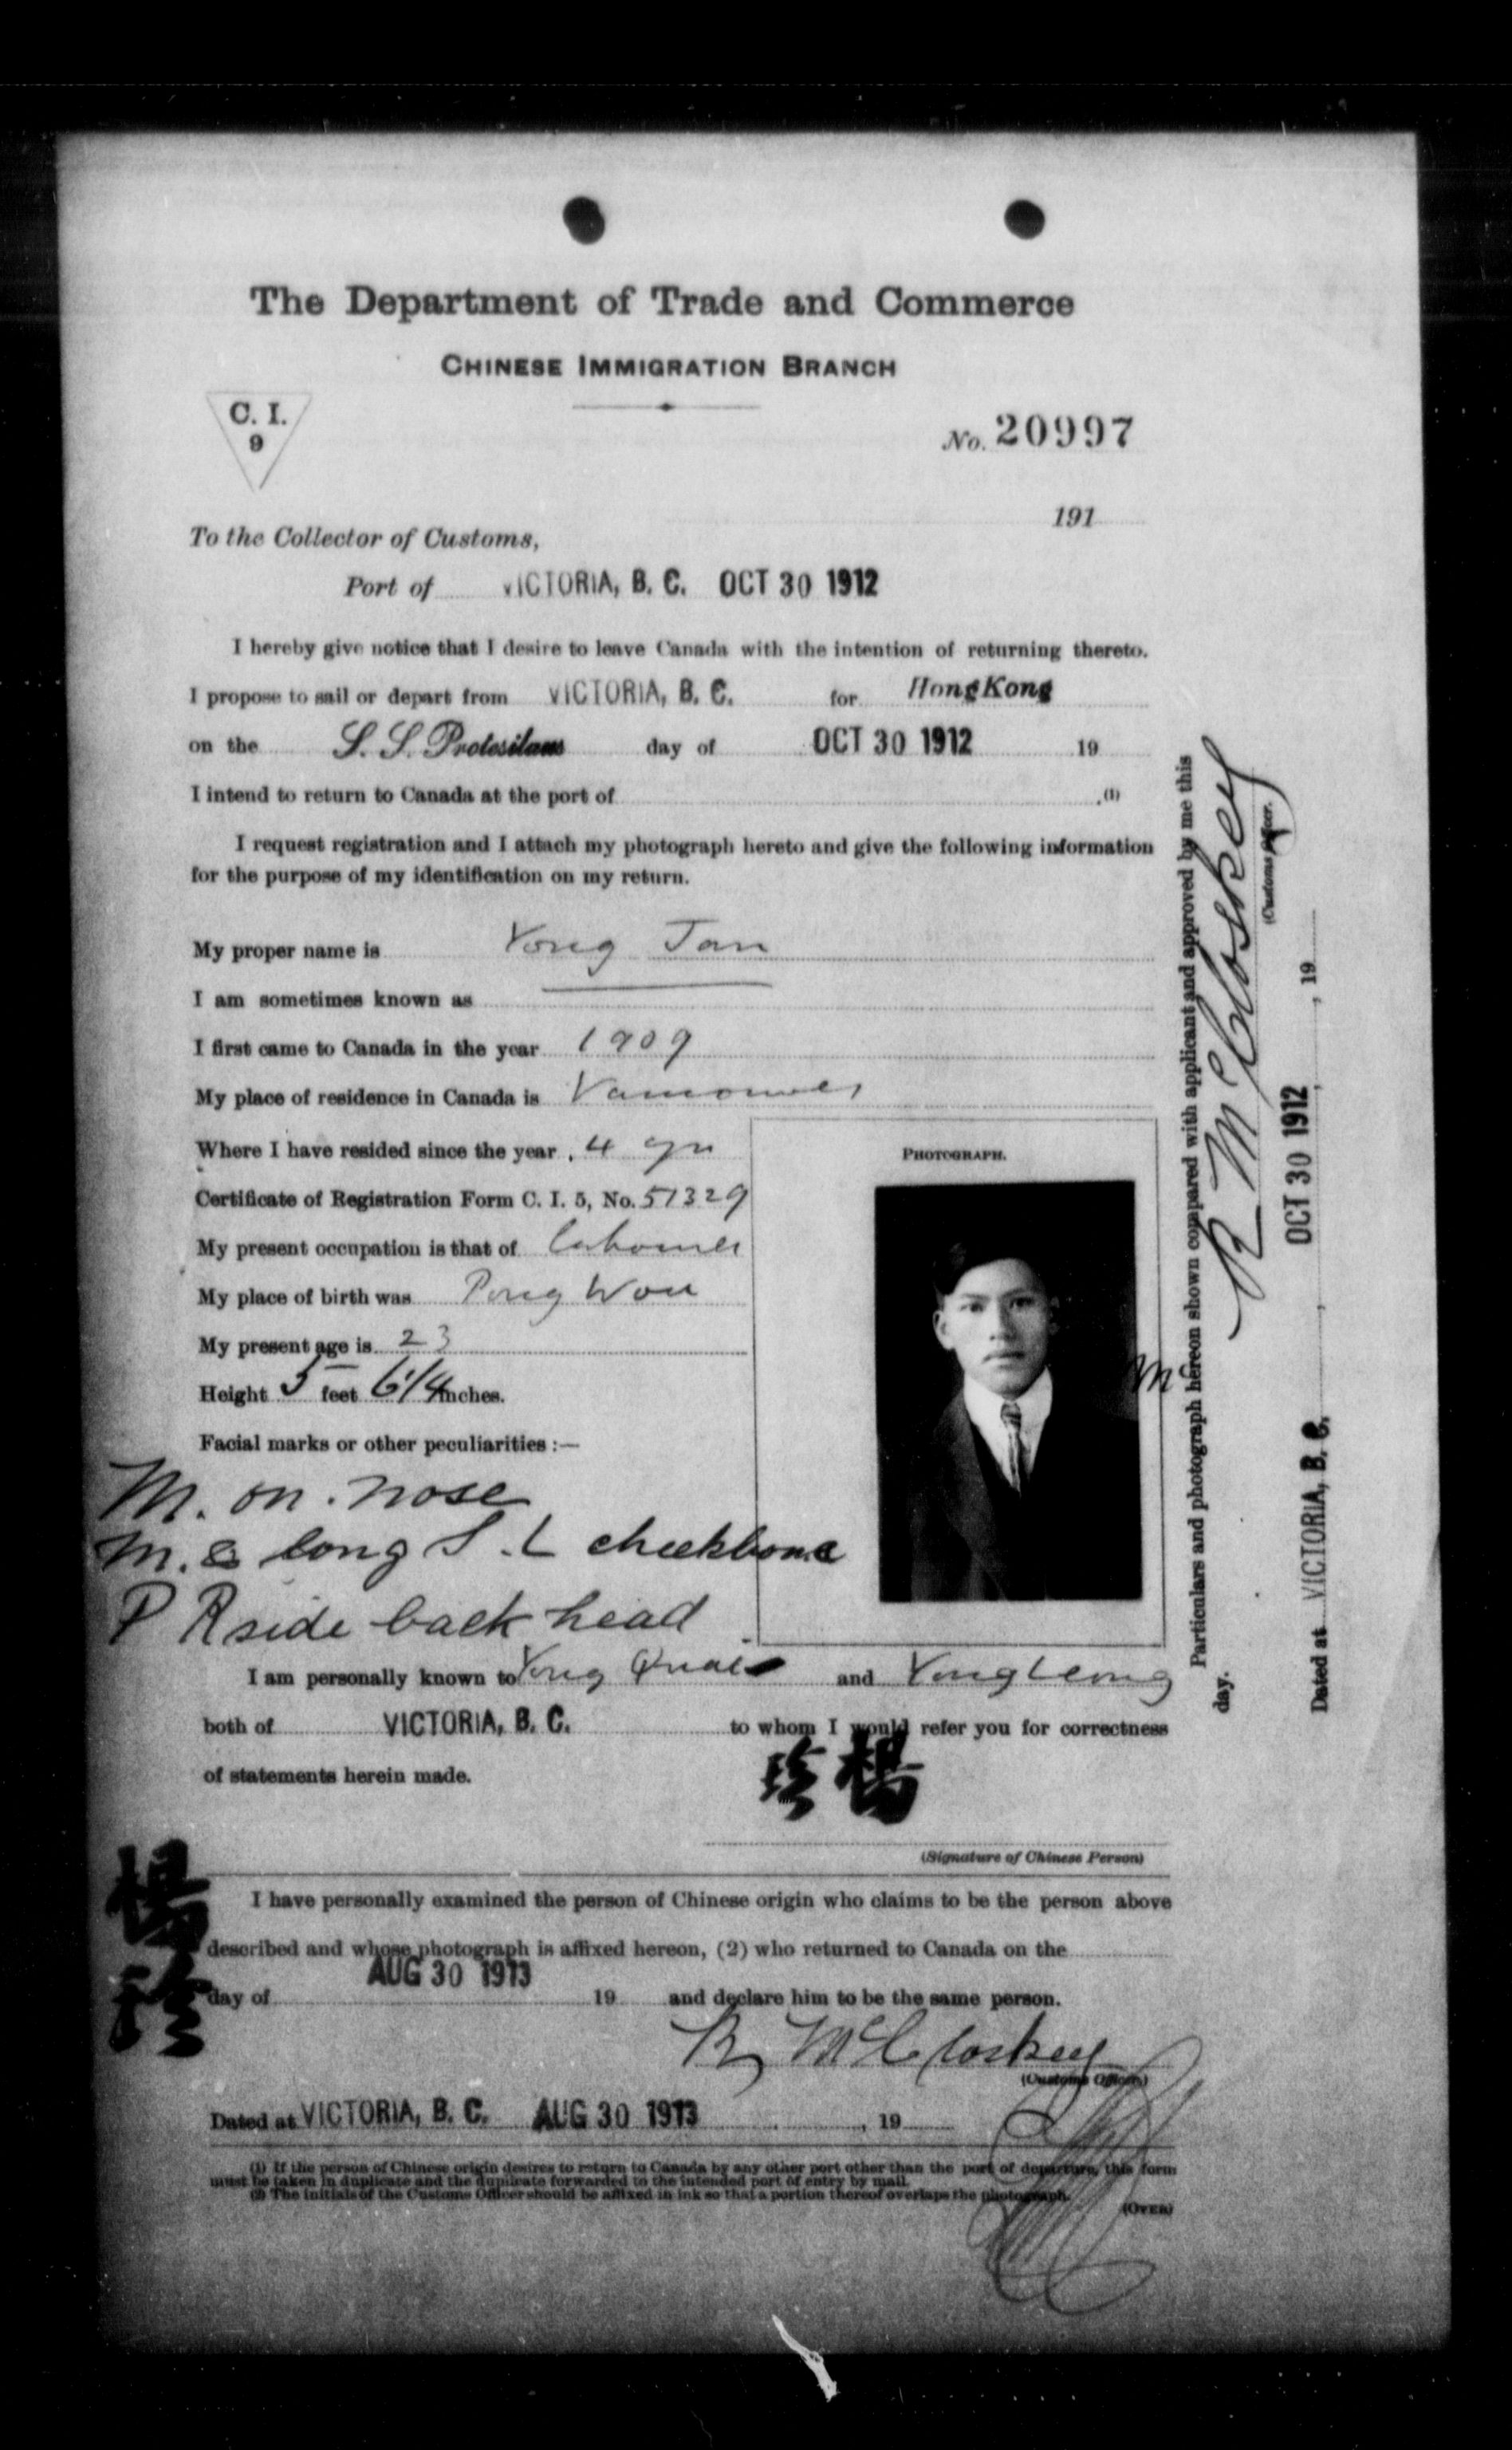 The Department of Trade and Commerce
CHINESE IMMIGRATION BRANCH
C. I.
9
No. 20997
191
To the Collector of Customs,
Port of VICTORIA, B. C. OCT 30 1912
I hereby give notice that I desire to leave Canada with the intention of returning thereto.
I propose to sail or depart from VICTORIA, B. C. for HongKong
on the S. S. Protesilaus day of OCT 30 1912 19
I intend to return to Canada at the port of .(1)
I request registration and I attach my photograph hereto and give the following information
for the purpose of my identification on my return.
My proper name is Yong Jan
I am sometimes known as
I first came to Canada in the year 1909
My place of residence in Canada is Vancouver
Where I have resided since the year, 4 yrs
Certificate of Registration Form C. I. 5, No. 51329
My present occupation is that of Labourer
My place of birth was Pong Won
My present age is 23
Height 5 feet 6 1/4 inches.
Facial marks or other peculiarities :—
M. on. nose
M. & long S. L cheekbone
P R side back head
PHOTOGRAPH.
Mc
I am personally known to Yong Quai and Yong Leong
both of VICTORIA, B. C. to whom I would refer you for correctness
of statements herein made.
珍楊
(Signature of Chinese Person)
楊珍
I have personally examined the person of Chinese origin who claims to be the person above
described and whose photograph is affixed hereon, (2) who returned to Canada on the
day of AUG 30 1913 19 and declare him to be the same person.
R McCloskey
(Customs Officer)
Dated at VICTORIA, B. C. AUG 30 1913 , 19
(1) If the person of Chinese origin desires to return to Canada by any other port other than the port of departure, this form
must be taken in duplicate and the duplicate forwarded to the intended port of entry by mail.
(2) The initials of the Customs Officer should be affixed in ink so that a portion thereof overlaps the photograph.
(OVER)
Particulars and photograph hereon shown compared with applicant and approved by me this
day.
R McCloskey
(Customs Officer.)
Dated at VICTORIA, B. C. , OCT 30 1912 , 19